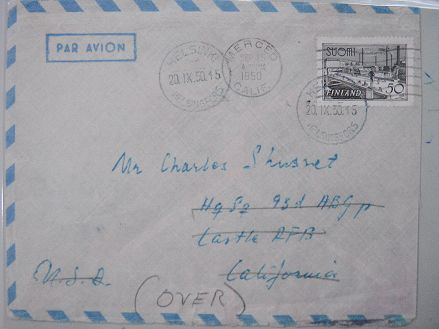 PAR AVION
HELSINKI
20.IX.50.15
HELSINGFORS
MERCED
SEP 25
1950
CALIF.
SUOMI
50
FINLAND
20.IX.50.15
HELSINGFORS
Mr Charles
Hq Sq 93d ABGp
Castle AFB
California
U.S.A.
(OVER)